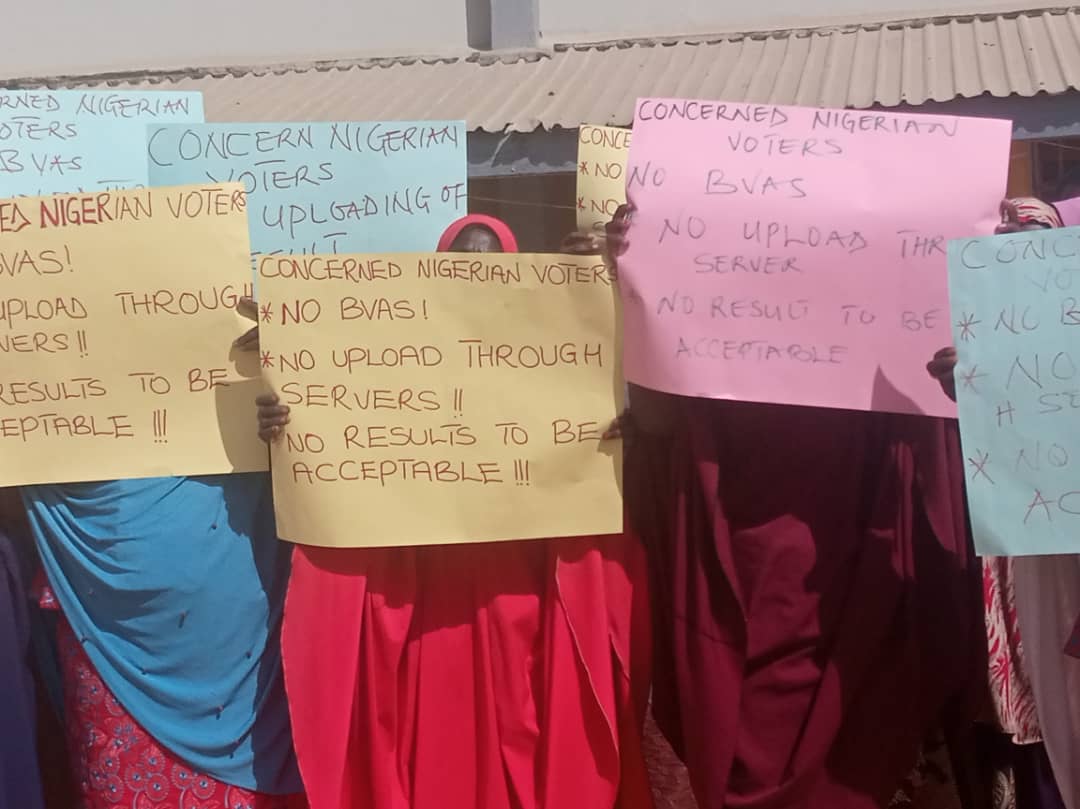 NIGERIAN
VOTERS
BVAS
CONCERN NIGERIAN
VOTERS
UPLOADING OF
RESULT
NIGERIAN VOTERS
BVAS!
UPLOAD THROUGH
RESULTS TO BE
!!!
CONCERNED NIGERIAN VOTERS
* NO BVAS!
* NO UPLOAD THROUGH
SERVERS!!
NO RESULTS TO BE
ACCEPTABLE!!!
* NO
* NO
CONCERNED NIGERIAN
VOTERS
NO BVAS
NO UPLOAD THR
SERVER
NO RESULT TO BE
ACCEPTABLE
* NO
* NO
* NO